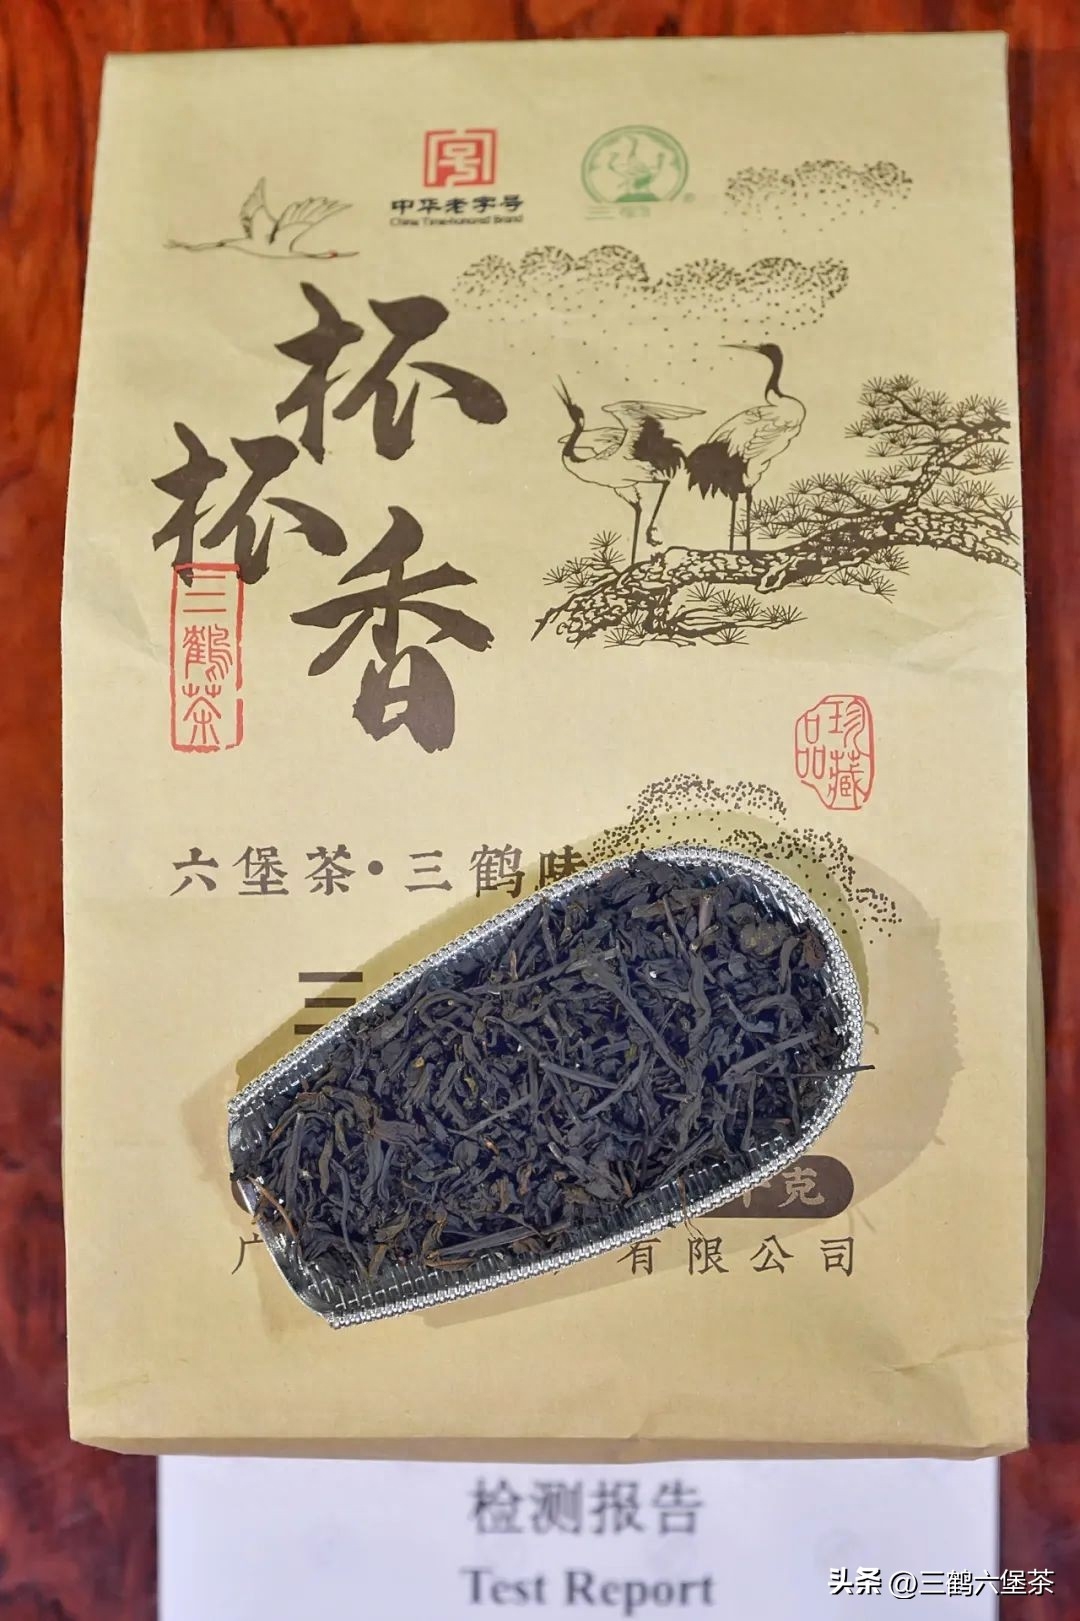 中华老字号
China Time-honored Brand
三鹤
杯杯香
三鹤茶
珍藏品
六堡茶·三鹤味
三
克
广
有限公司
检测报告
Test Report
头条 @三鹤六堡茶